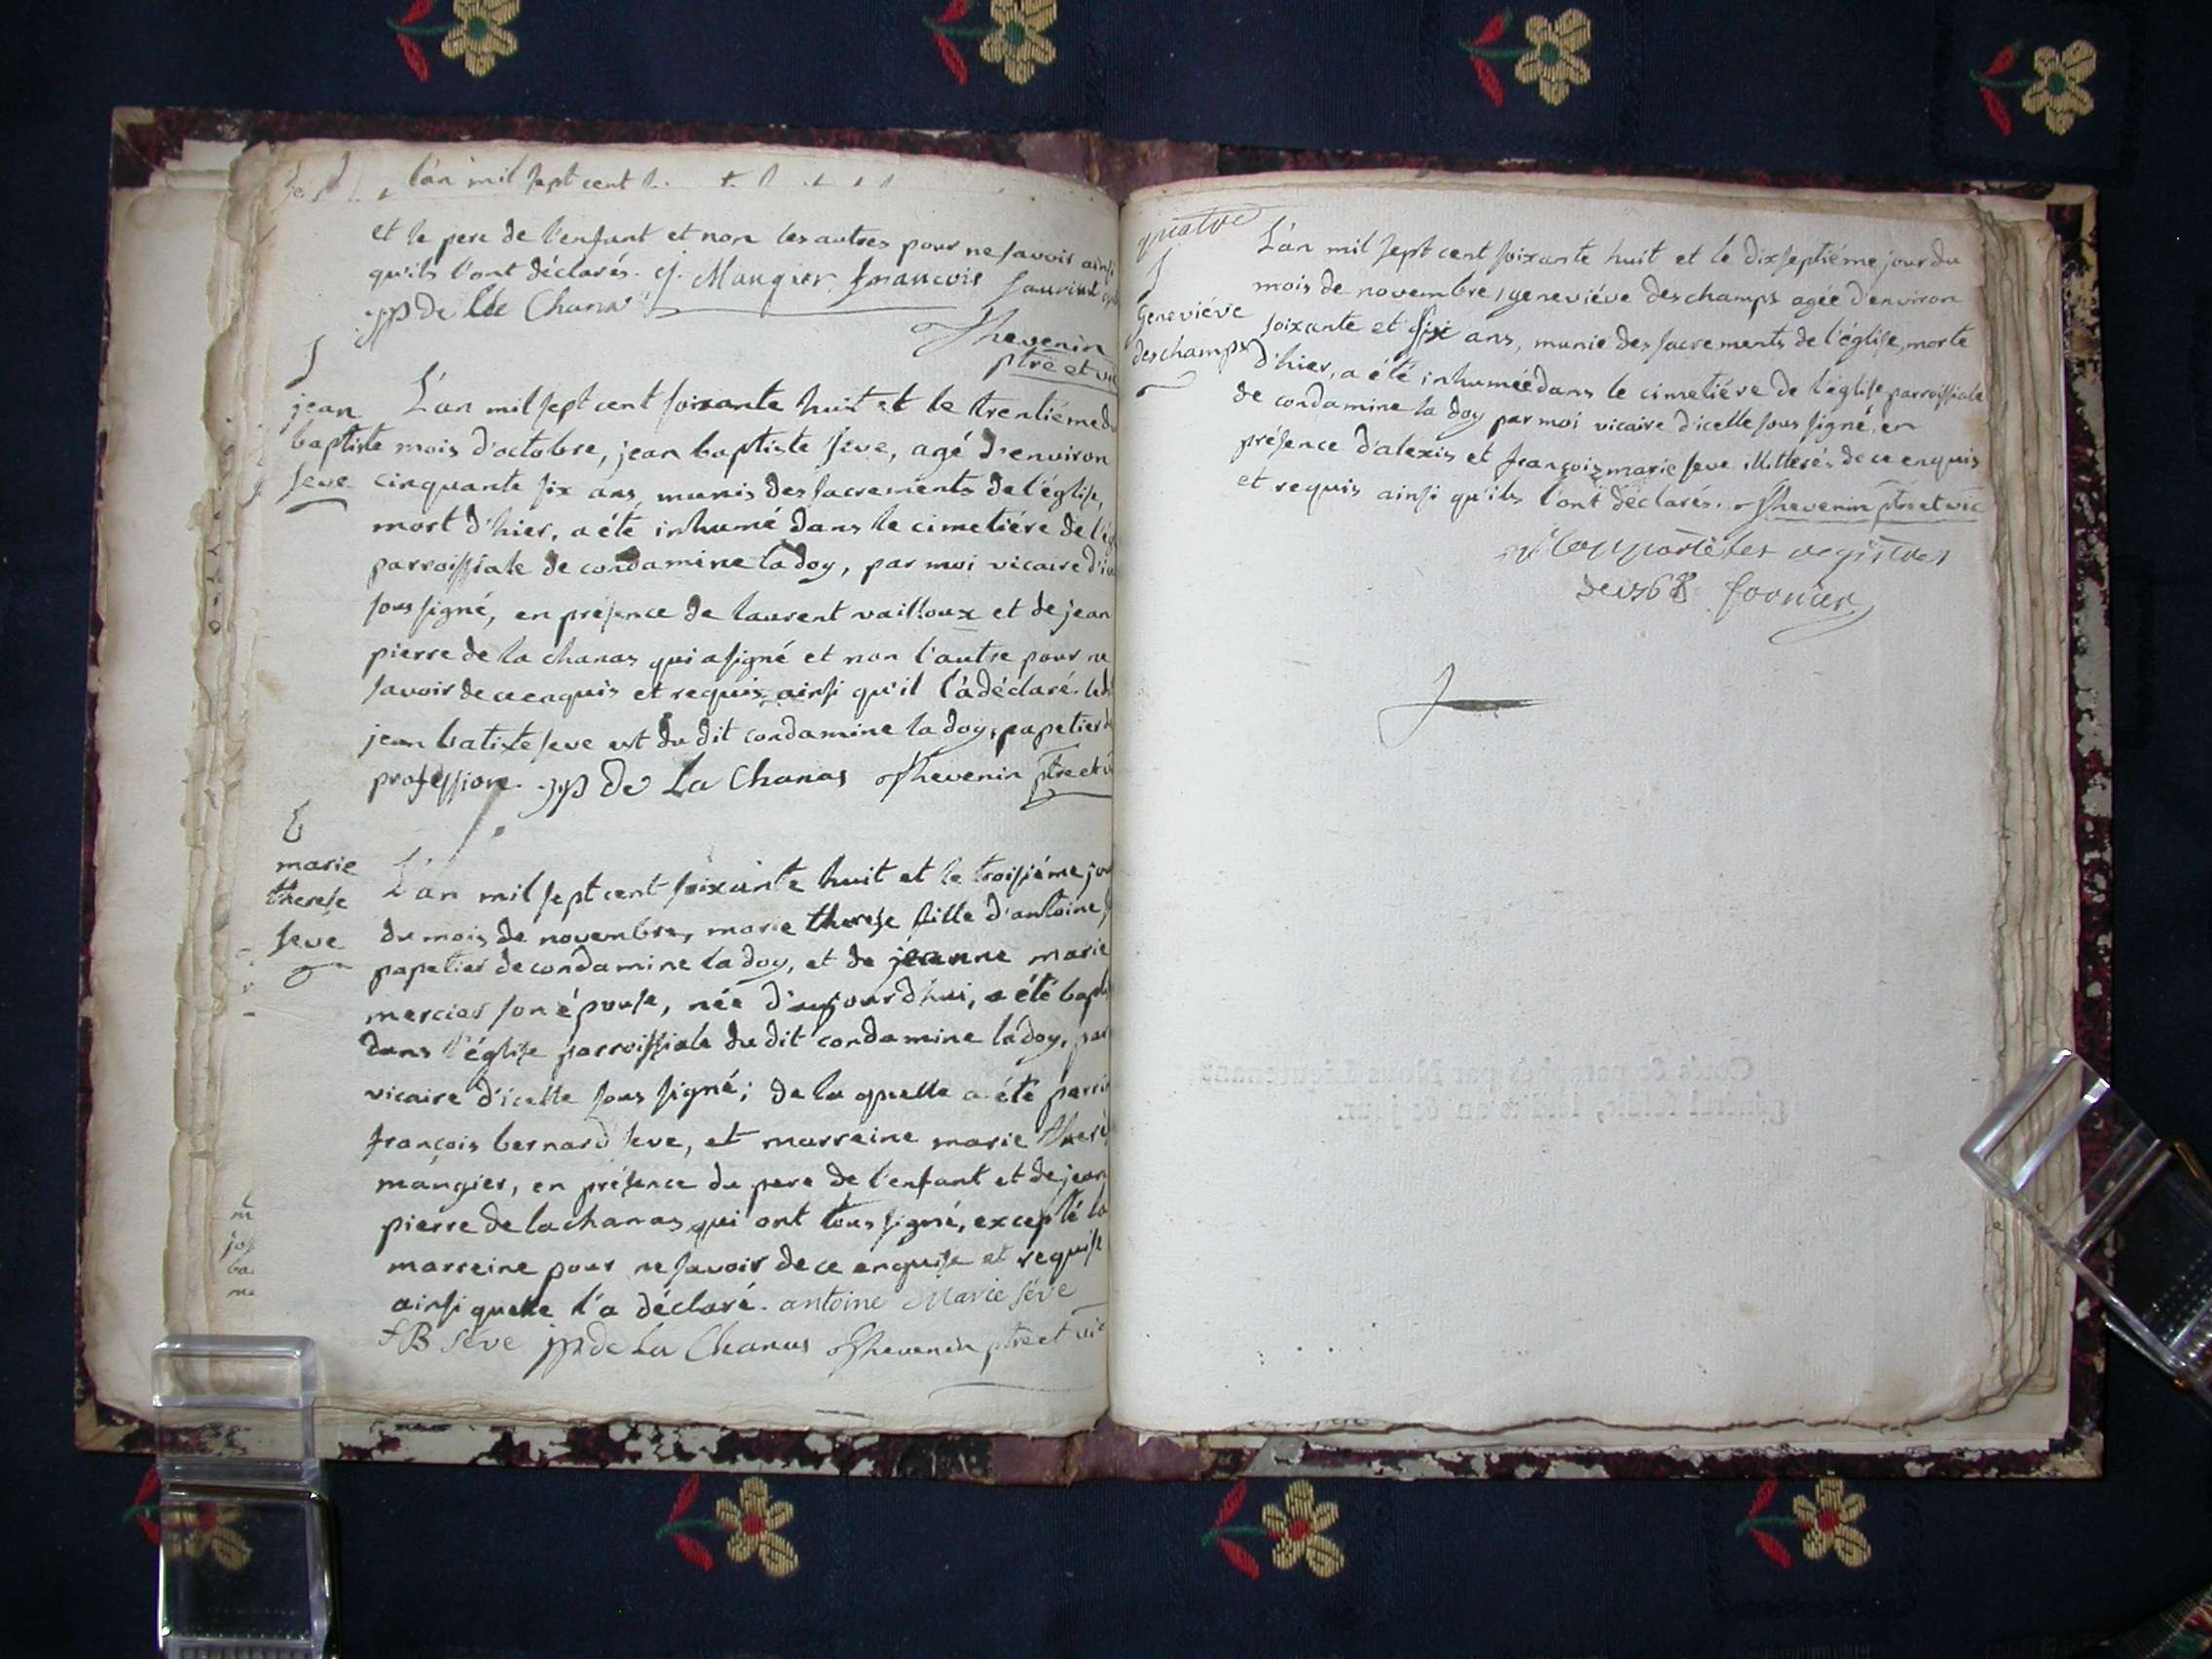 l'an mil sept cent
et le pere de l'enfant et non les autres pour ne savoir ainsi
qu'ils l'ont déclarés. Maugier francois
jp de la Chanas
Thevenin
ptre et vic
jean
baptiste
seve
L'an mil sept cent soixante huit et le trentiéme du
mois d'octobre, jean baptiste seve, agé d'environ
cinquante six ans, munis des sacrements de l'église,
mort d'hier, a été inhumé dans le cimetiére de
parroissiale de condamine la doy, par moi vicaire
sous signé, en presence de laurent vailloux et de jean
pierre de la chanas qui a signé et non l'autre pour ne
savoir de ce enquis et requis ainsi qu'il l'a déclaré. led
jean batiste seve est du dit condamine la doy, papetier de
profession. jp de La Chanas Thevenin ptre et vi
B
marie
therese
seve
L'an mil sept cent soixante huit et le troisiéme jou
du mois de novembre, marie therese fille d'antoine
papetier de condamine la doy, et de jeanne marie
mercier son épouse, née d'aujourd'hui, a été bapt
dans l'église parroissiale du dit condamine la doy, par
vicaire d'icelle sous signé; de la quelle a été parrin
françois bernard seve, et marreine marie there
maugier, en présence du pere de l'enfant et de jean
pierre de la chanas qui ont tous signé, excepté la
marreine pour ne savoir de ce enquise et requise
ainsi quelle l'a déclaré. antoine Marie séve
f B séve jp de La Chanas Thevenin ptre et vic
quatre
Geneviéve
deschamps
L'an mil sept cent soixante huit et le dixseptiéme jour du
mois de novembre, geneviéve deschamps agée d'environ
soixante et six ans, munie des sacrements de l'église, morte
d'hier, a été inhumée dans le cimetiére de l'église parroissiale
de condamine la doy par moi vicaire d'icelle sous signé, en
présence d'alexis et françois marie seve illitterés de ce enquis
et requis ainsi qu'ils l'ont déclarés. Thevenin ptre et vic
apporté les registres
de 1768